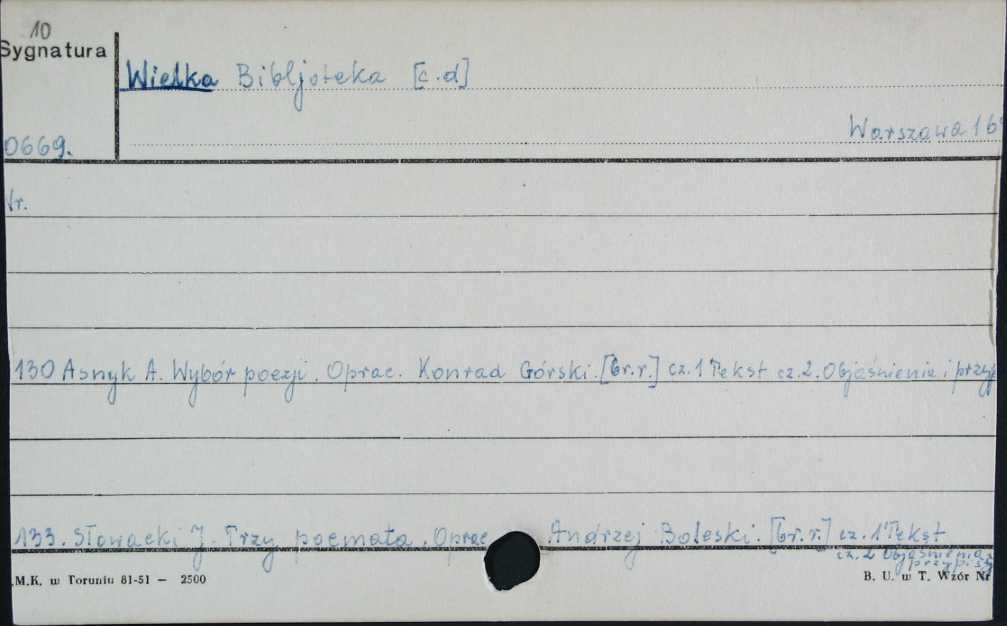 10
Sygnatura
Wielka Bibljoteka [c.d]
Warszawa 16
0669.
Nr.
130 Asnyk A. Wybór poezji. Oprac. Konrad Górski. [br.r.] cz.1 Tekst cz.2. Objaśnienia i przyp
133. Słowacki J. Trzy poemata. Oprac Andrzej Boleski. [br.r.] cz.1 Tekst
cz.2 Objaśnienia
przypisy
.M.K. w Toruniu 81-51 — 2500
B. U. w T. Wzór Nr